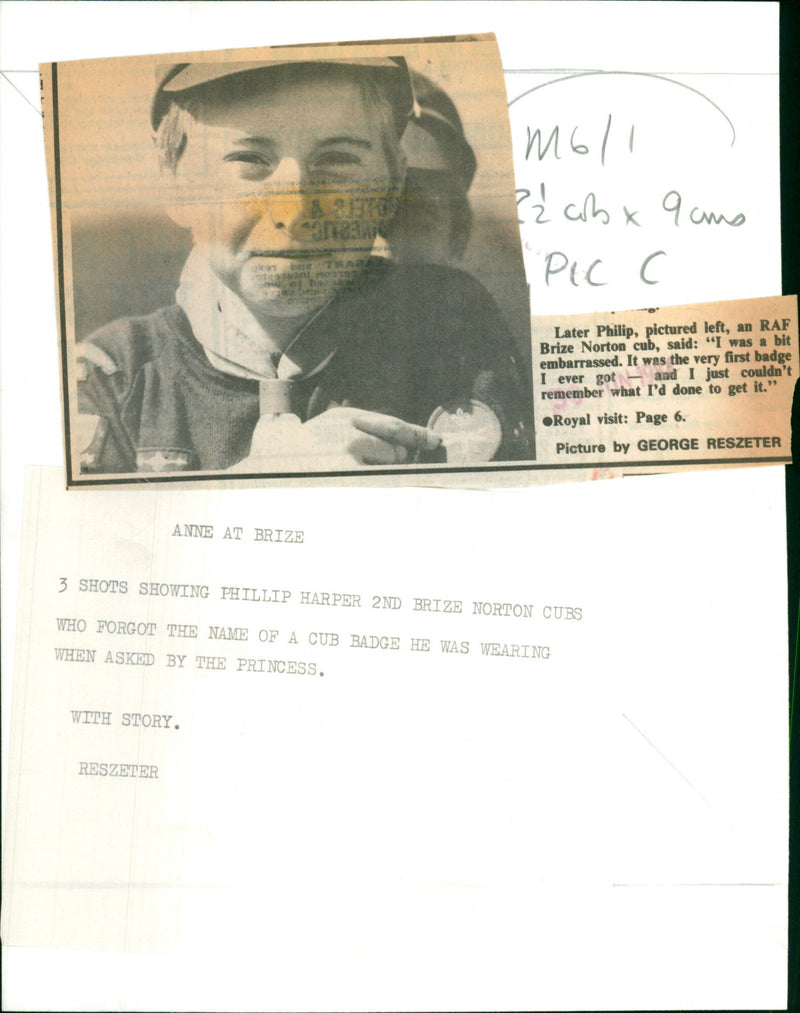 M6/1
2½ cols x 9 cms
PIC C
Later Philip, pictured left, an RAF
Brize Norton cub, said: “I was a bit
embarrassed. It was the very first badge
I ever got — and I just couldn’t
remember what I’d done to get it.”
●Royal visit: Page 6.
Picture by GEORGE RESZETER
ANNE AT BRIZE
3 SHOTS SHOWING PHILLIP HARPER 2ND BRIZE NORTON CUBS
WHO FORGOT THE NAME OF A CUB BADGE HE WAS WEARING
WHEN ASKED BY THE PRINCESS.
WITH STORY.
RESZETER